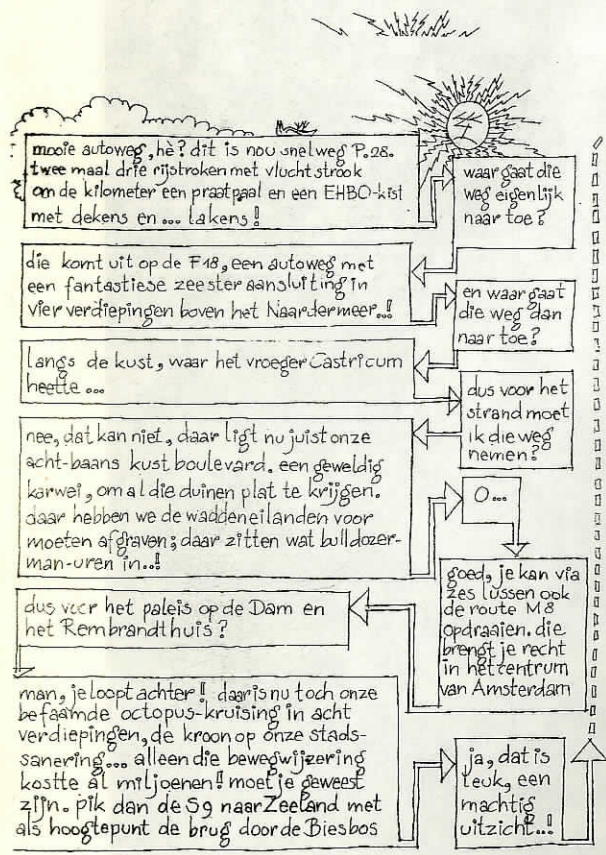 mooie autoweg, hè? dit is nou snelweg P.28.
twee maal drie rijstroken met vluchtstrook
om de kilometer een praatpaal en een EHBO-kist
met dekens en... lakens!
waar gaat die
weg eigenlijk
naar toe?
die komt uit op de F18, een autoweg met
een fantastiese zeester aansluiting in
vier verdiepingen boven het Naardermeer..!
en waar gaat
die weg dan
naar toe?
langs de kust, waar het vroeger Castricum
heette...
dus voor het
strand moet
ik die weg
nemen?
nee, dat kan niet, daar ligt nu juist onze
acht-baans kustboulevard. een geweldig
karwei, om al die duinen plat te krijgen.
daar hebben we de waddeneilanden voor
moeten afgraven; daar zitten wat bulldozer-
man-uren in..!
O...
goed, je kan via
zes lussen ook
de route M8
opdraaien. die
brengt je recht
in het centrum
van Amsterdam
dus voor het paleis op de Dam en
het Rembrandthuis?
man, je loopt achter! daar is nu toch onze
befaamde octopus-kruising in acht
verdiepingen, de kroon op onze stads-
sanering... alleen die bewegwijzering
kostte al miljoenen! moet je geweest
zijn. pik dan de S9 naar Zeeland met
als hoogtepunt de brug door de Biesbos
ja, dat is
leuk, een
machtig
uitzicht..!